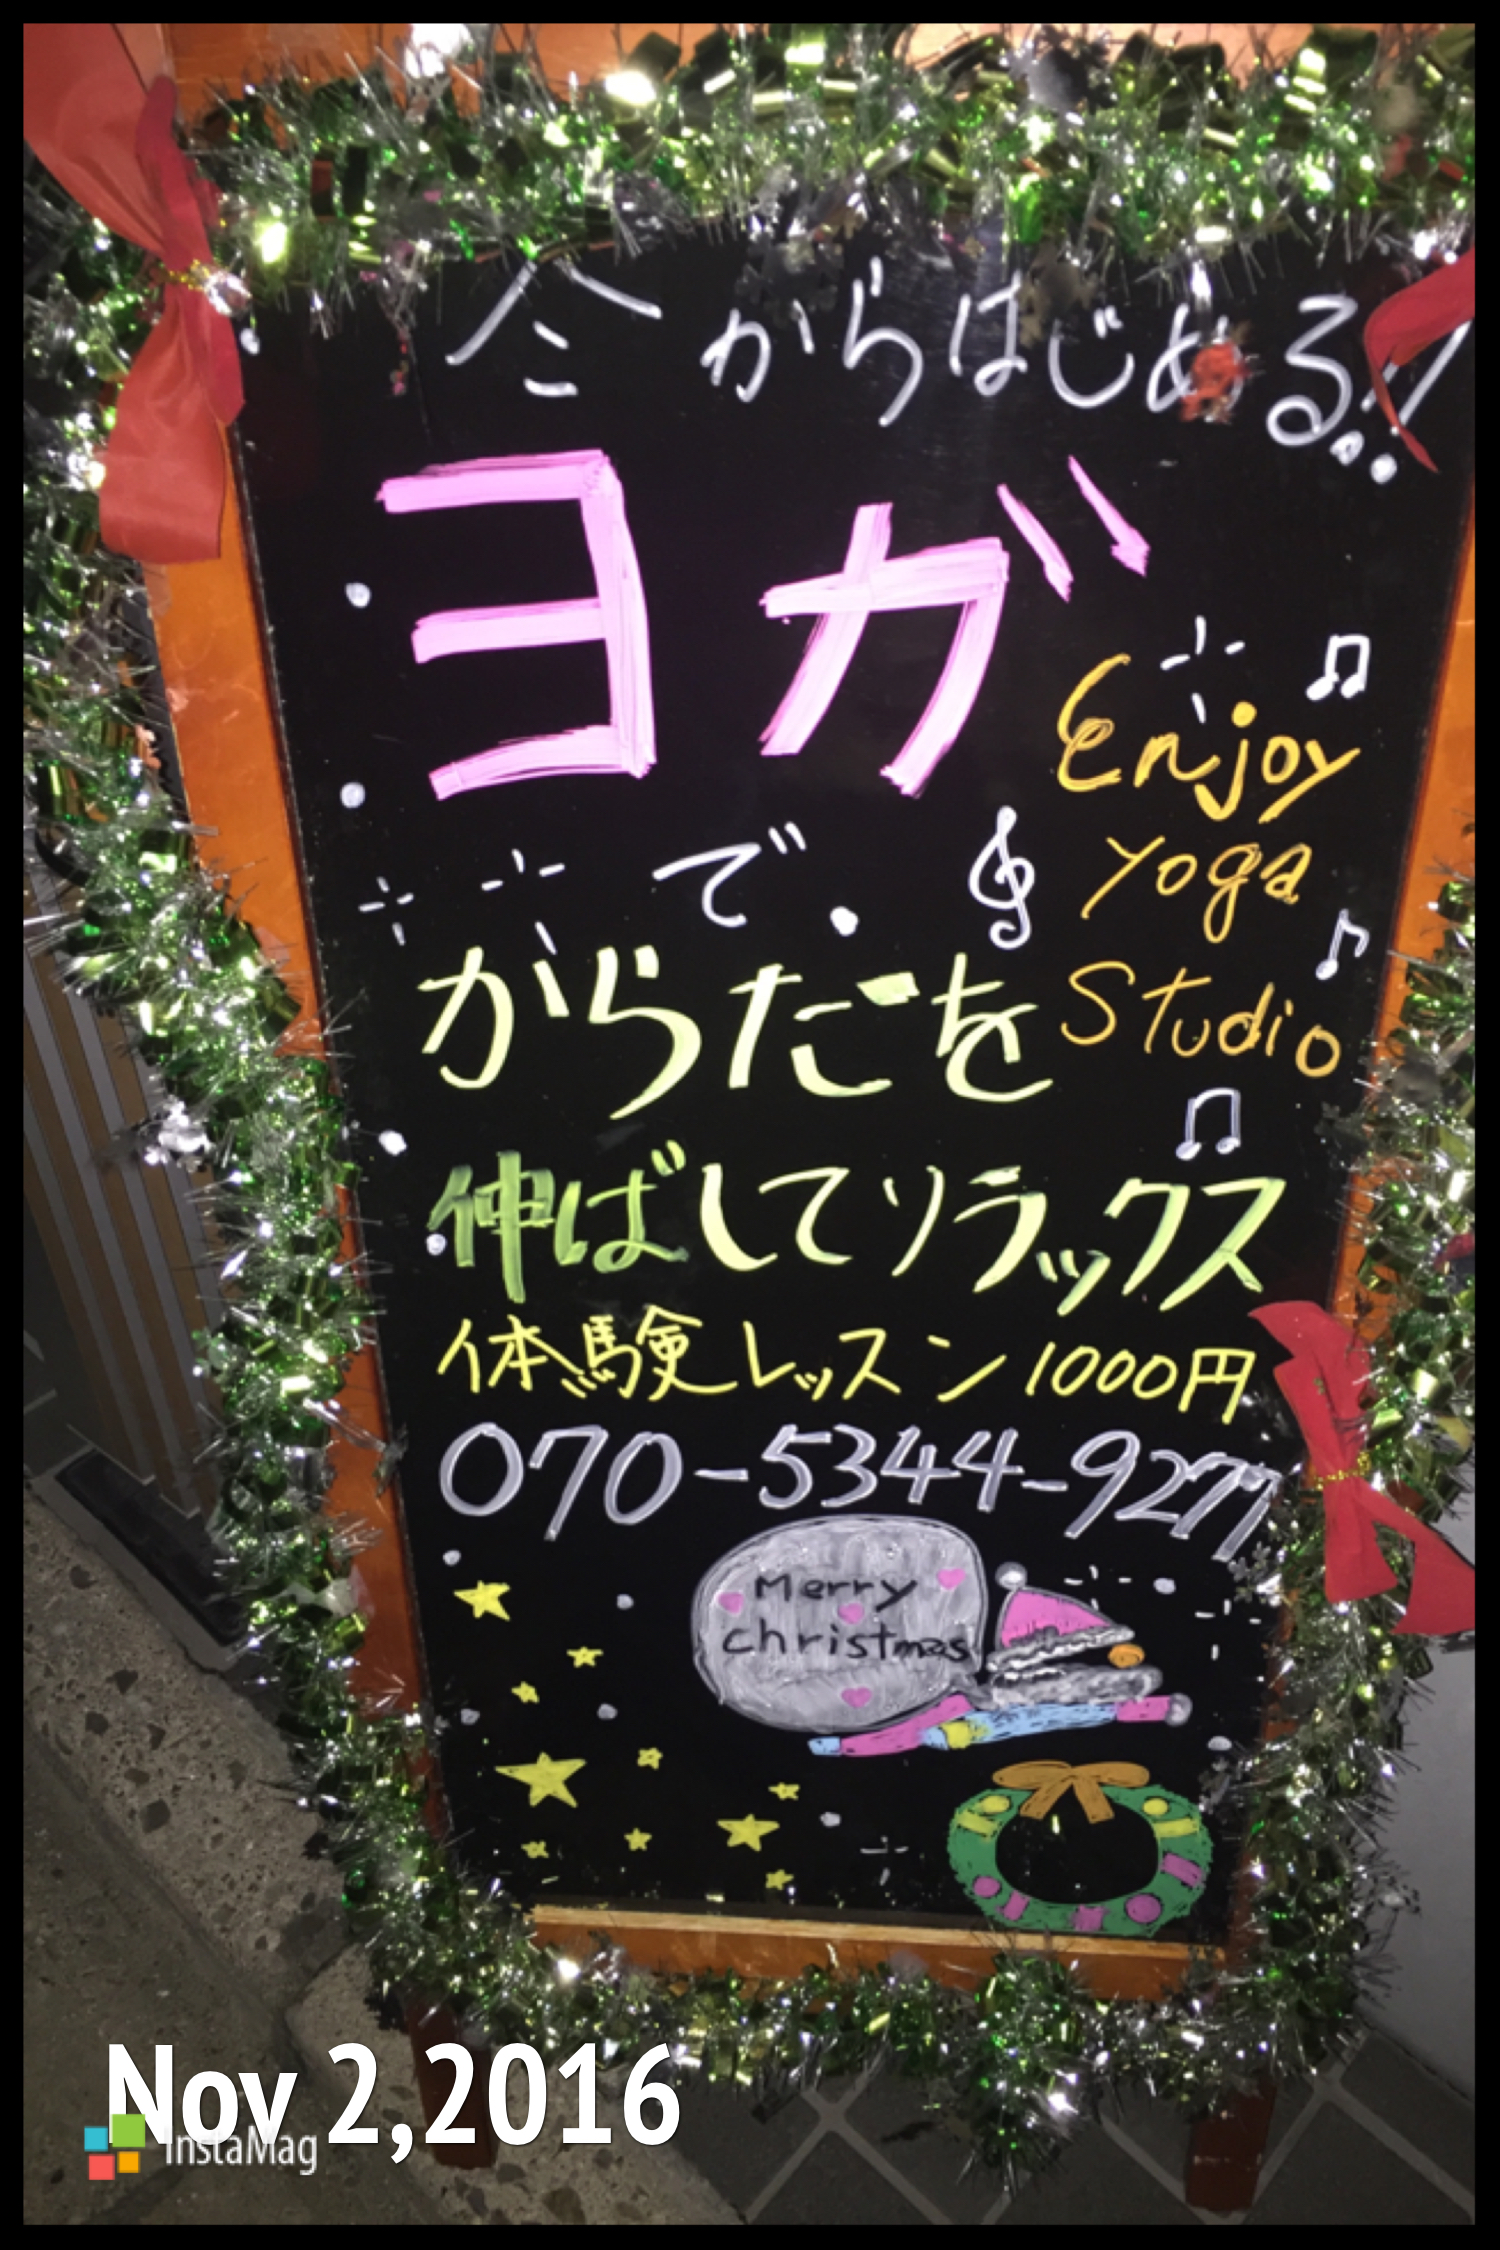 今からはじめる!!
ヨガ
で、
Enjoy
yoga
Studio
からだを
伸ばしてリラックス
体験レッスン1000円
070-5344-9277
Merry
christmas
Nov 2,2016
InstaMag